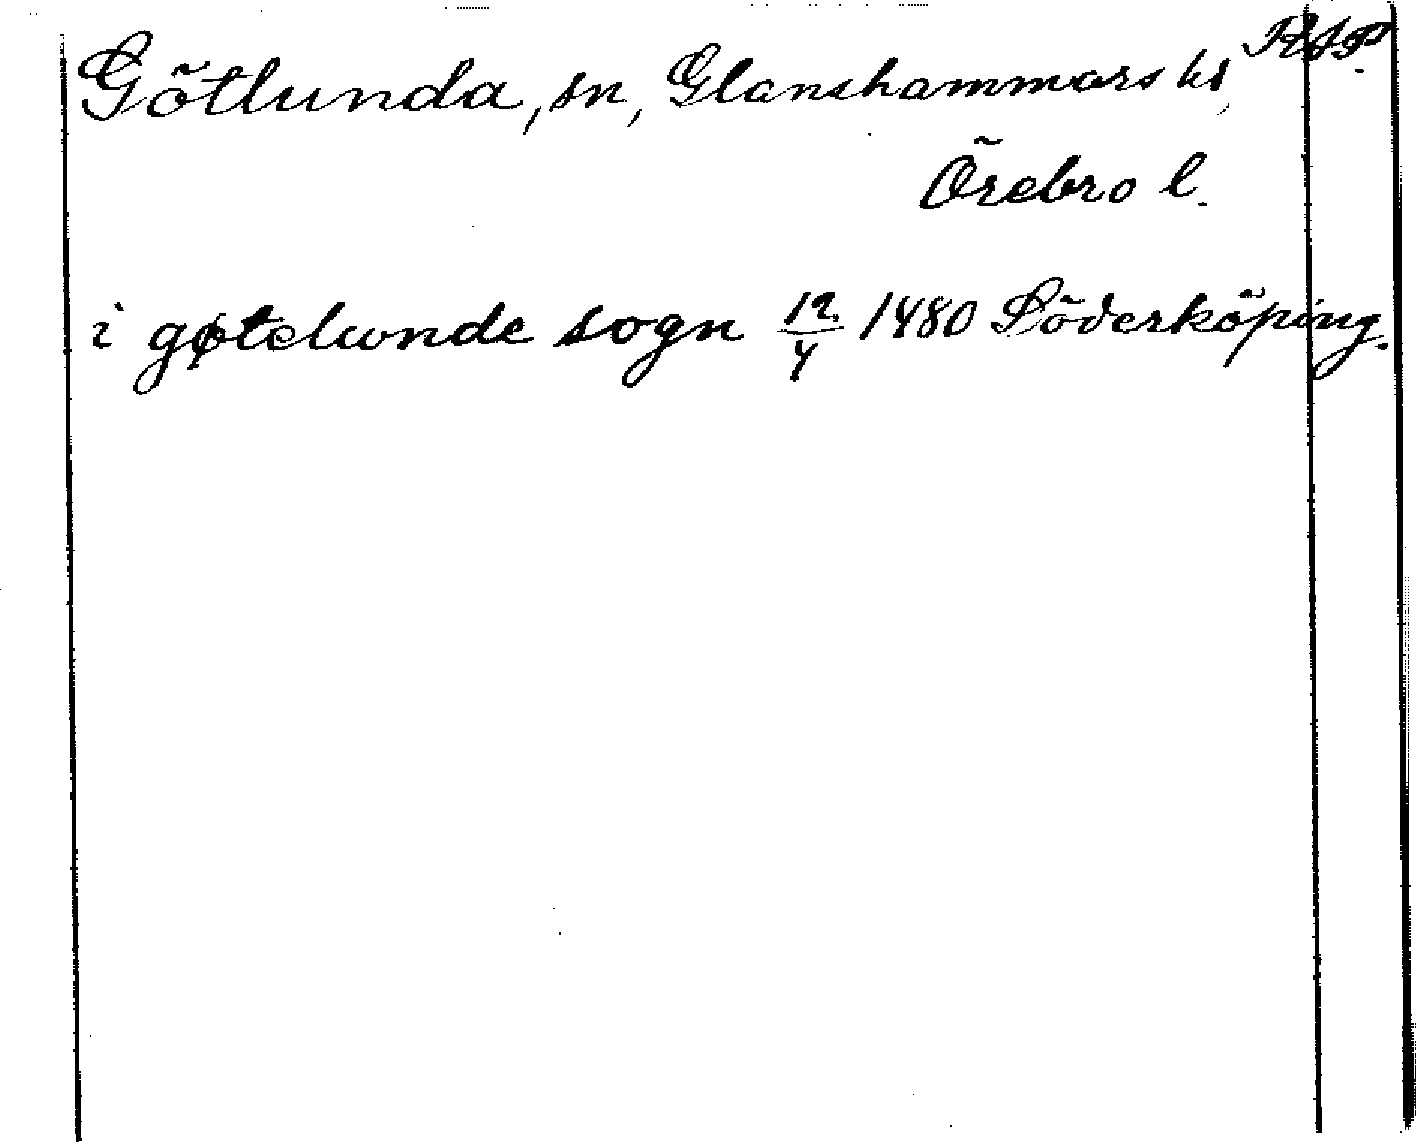 Götlunda, sn, Glanshammars hd, RAP.
Örebro l.
i gøtelunde sogn 12/4 1480 Söderköping.